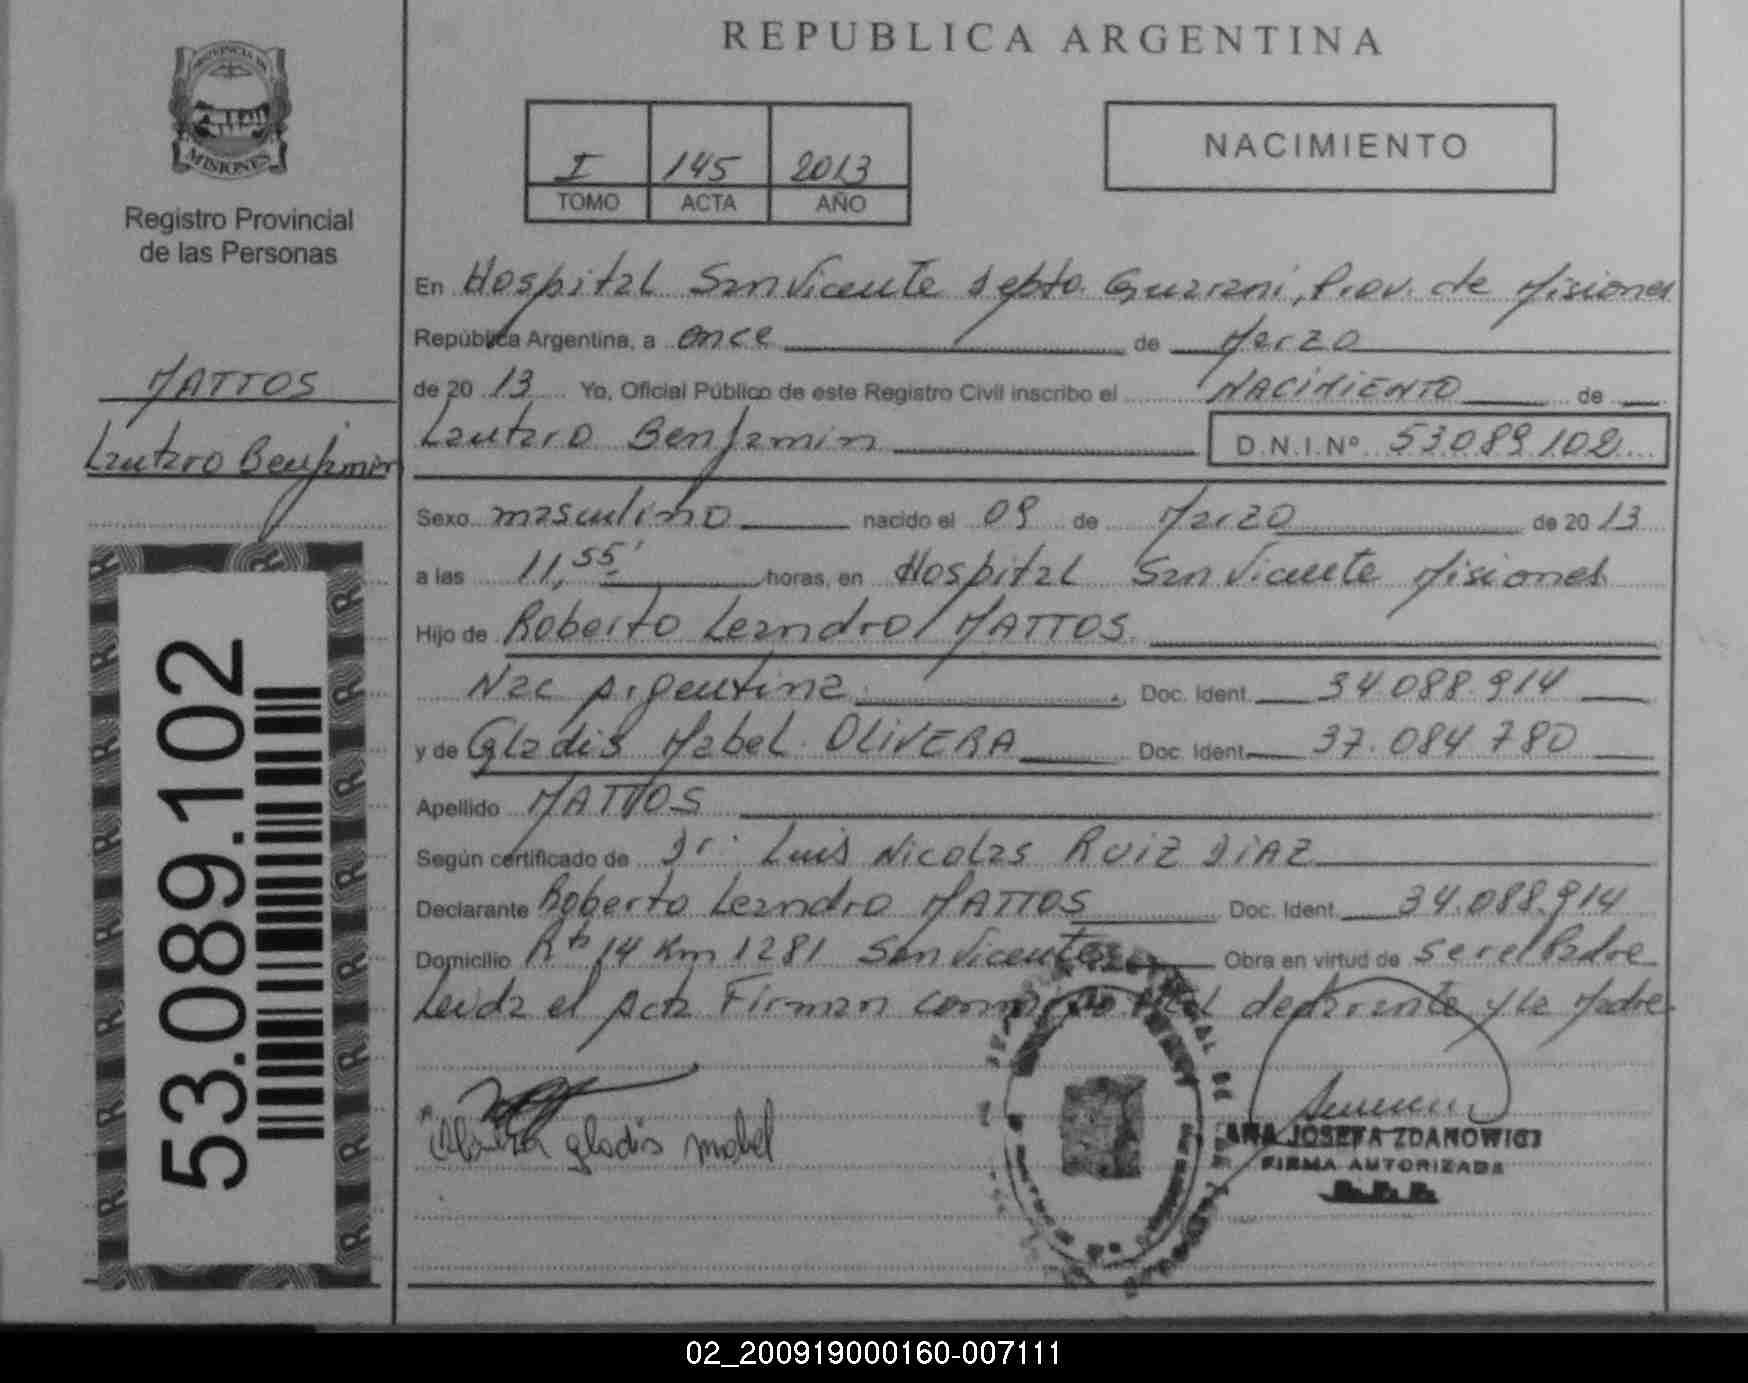 REPUBLICA ARGENTINA
PROVINCIA DE
MISIONES
Registro Provincial
de las Personas
I 145 2013
TOMO ACTA AÑO
NACIMIENTO
MATTOS
Lautaro Benjamin
53.089.102
En Hospital San Vicente depto. Guarani, Prov. de Misiones
República Argentina, a once de Marzo
de 20 13 Yo, Oficial Público de este Registro Civil inscribo el NACIMIENTO de
Lautaro Benjamin D.N.I.Nº 53.089.102
Sexo masculino nacido el 09 de Marzo de 20 13
a las 11,55' horas, en Hospital San Vicente Misiones
Hijo de Roberto Leandro MATTOS
Nac Argentina Doc. Ident. 34.088.914
y de Gladis Mabel OLIVERA Doc. Ident. 37.084.780
Apellido MATTOS
Según certificado de Dr. Luis Nicolas RUIZ DIAZ
Declarante Roberto Leandro MATTOS Doc. Ident. 34.088.914
Domicilio Rta 14 Km 1281 San Vicente Obra en virtud de ser el Padre
Leida el Acta Firman el declarante y la Madre
gladis mabel
ANA JOSEFA ZDANOWICZ
FIRMA AUTORIZADA
02_200919000160-007111